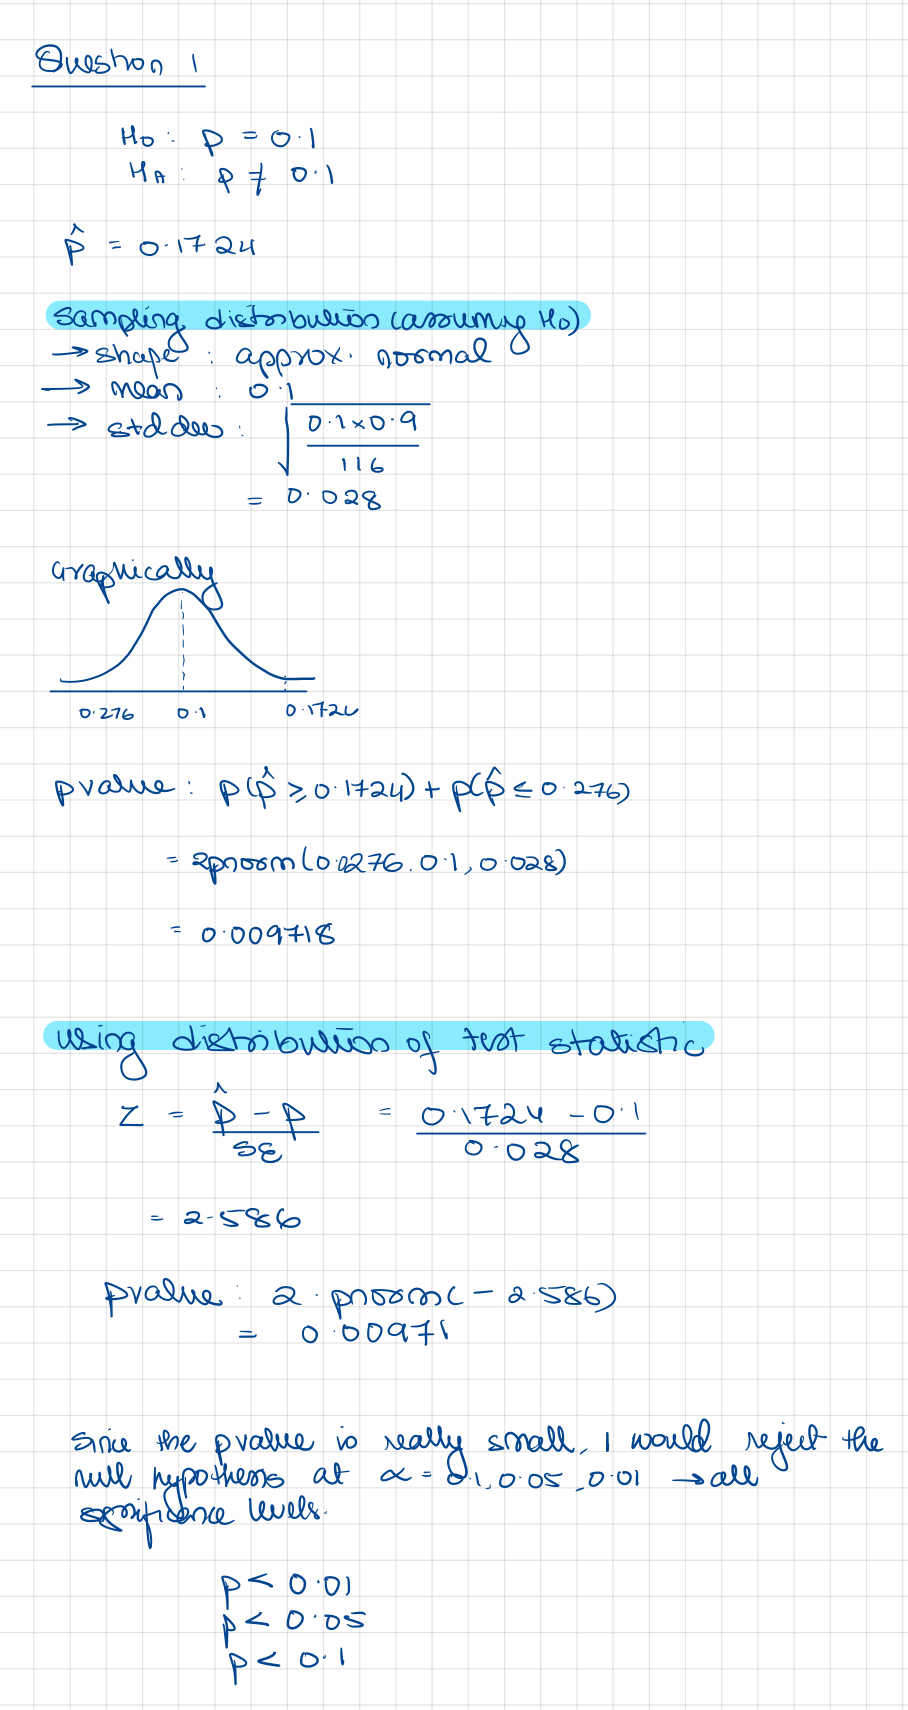 Question 1
H0 : p = 0.1
HA : p ≠ 0.1
p̂ = 0.1724
Sampling distribution (assuming H0)
→ shape : approx. normal
→ mean : 0.1
→ std dev : √(0.1×0.9 / 116)
= 0.028
Graphically
0.276 0.1 0.1724
pvalue : p(p̂ ≥ 0.1724) + p(p̂ ≤ 0.276)
= 2pnorm(0.0276, 0.1, 0.028)
= 0.009718
using distribution of test statistic
Z = p̂ - p / SE = 0.1724 - 0.1 / 0.028
= 2.586
pvalue : 2 · pnorm(-2.586)
= 0.00971
Since the pvalue is really small, I would reject the
null hypothesis at α = 0.1, 0.05, 0.01 → all
significance levels.
p < 0.01
p < 0.05
p < 0.1